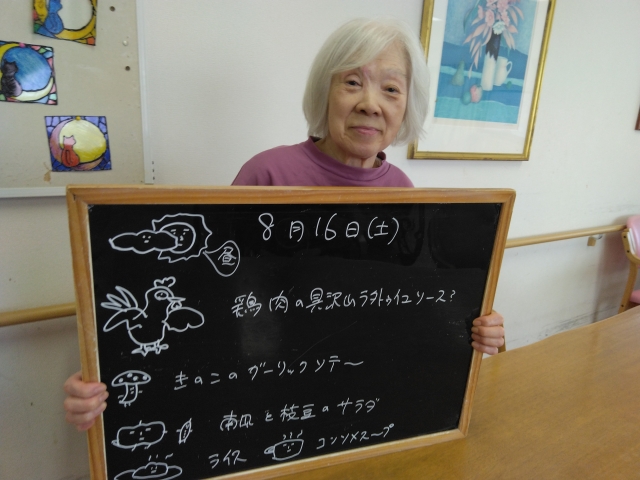 8月16日(土)
昼
鶏肉の具沢山ラタトゥイユソース?
きのこのガーリックソテー
南瓜と枝豆のサラダ
ライス コンソメスープ